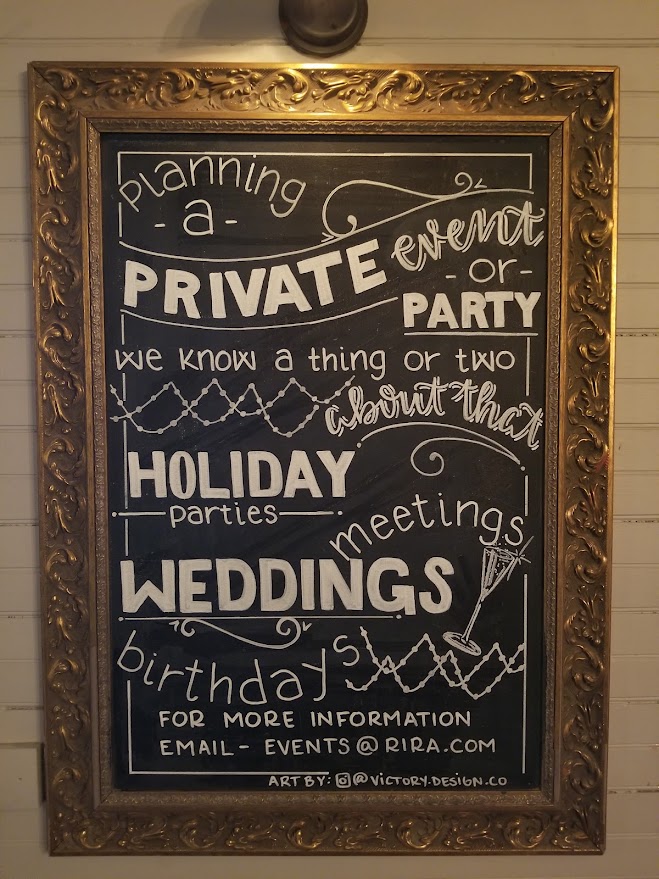 planning
- a -
PRIVATE event
- or -
PARTY
we know a thing or two
about that
HOLIDAY
parties
meetings
WEDDINGS
birthdays
FOR MORE INFORMATION
EMAIL - EVENTS@RIRA.COM
ART BY: @VICTORY.DESIGN.CO